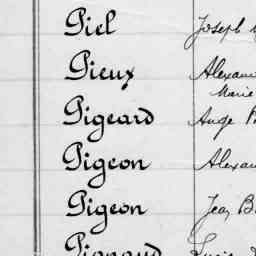 Piel Joseph
Pieux Alexan
Marie
Pigeard Ange
Pigeon Alexan
Pigeon Jean B
Pignaud Lucie